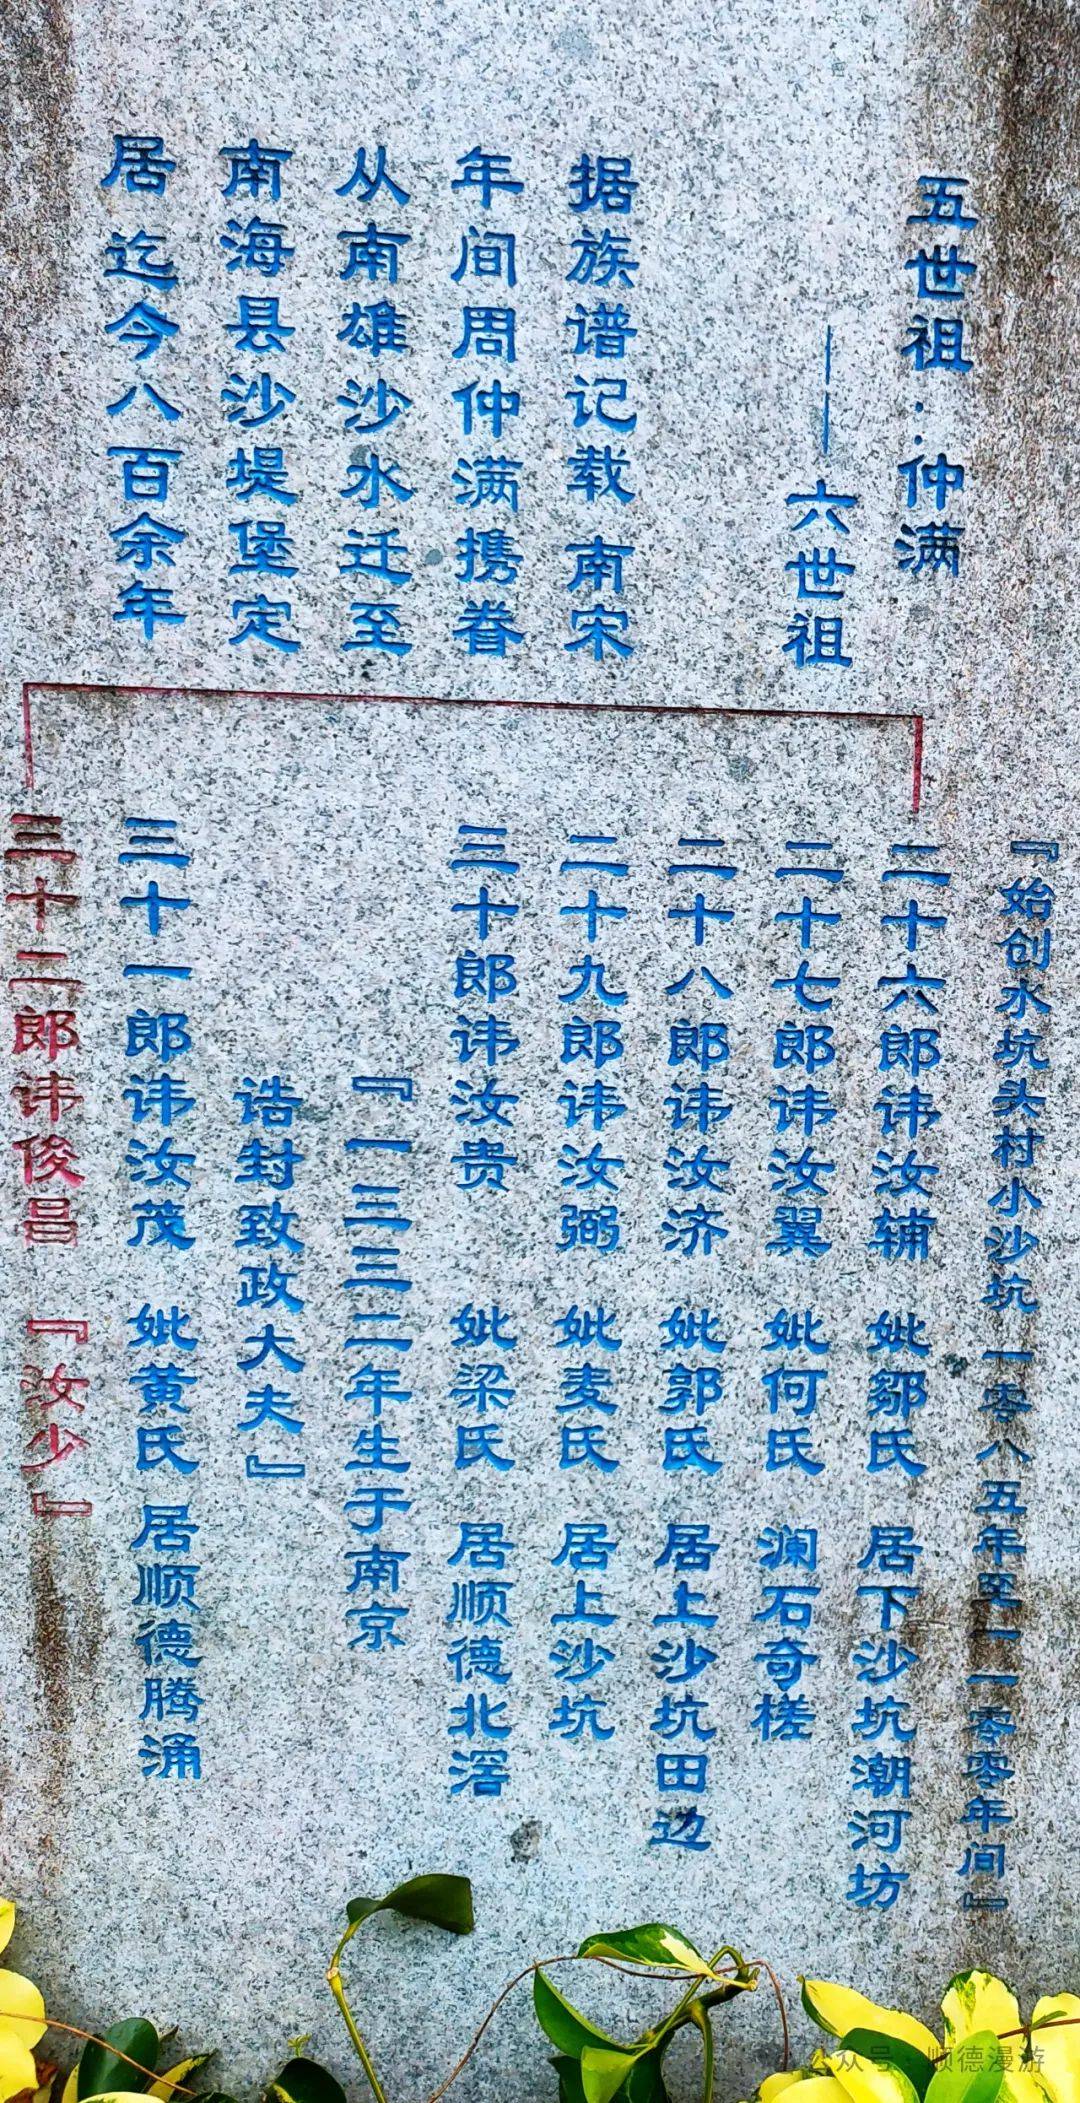 五世祖：仲满
——六世祖
据族谱记载南宋
年间周仲满携眷
从南雄沙水迁至
南海县沙堤堡定
居迄今八百余年
『始创水坑头村小沙坑一零八五年至一一零零年间』
二十六郎讳汝辅 妣邹氏 居下沙坑潮河坊
二十七郎讳汝翼 妣何氏 澜石奇槎
二十八郎讳汝济 妣郭氏 居上沙坑田边
二十九郎讳汝弼 妣麦氏 居上沙坑
三十郎讳汝贵 妣梁氏 居顺德北滘
『一三三二年生于南京
诰封致政大夫』
三十一郎讳汝茂 妣黄氏 居顺德腾涌
三十二郎讳俊昌『汝少』
公众号·顺德漫游